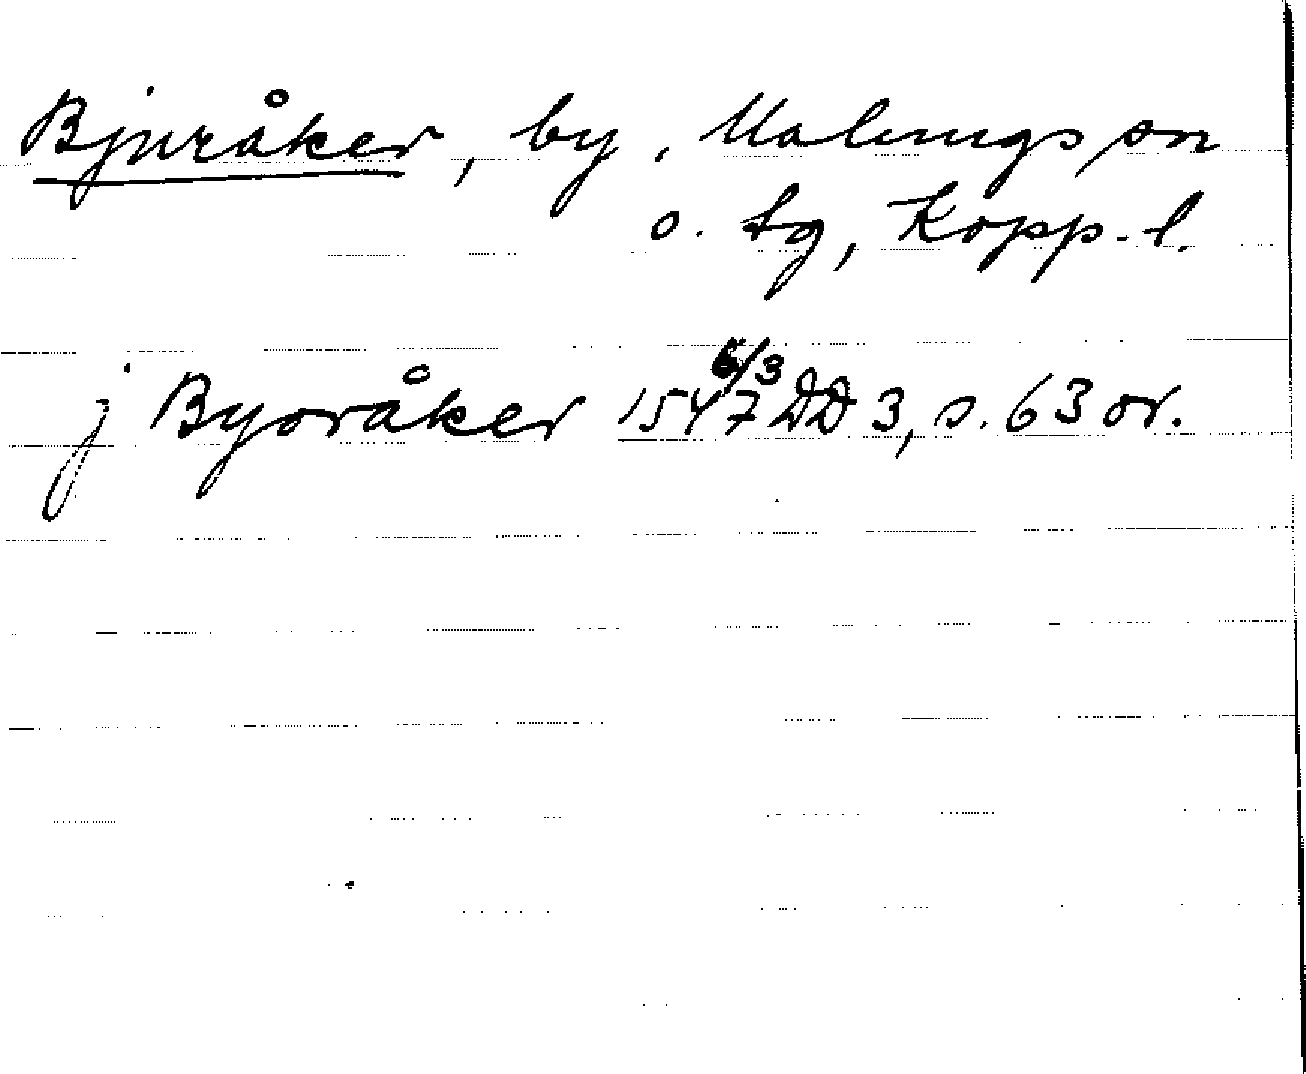 Bjuråker, by, Malungs sn
o. tg, Kopp. l.
j Byoråker 1547 6/3 DD 3, s. 63 or.